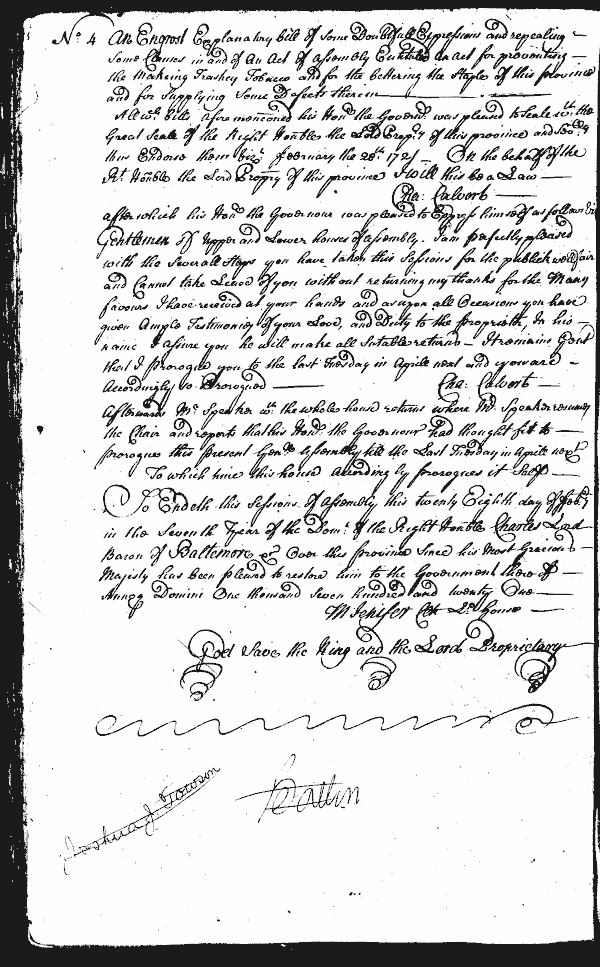 No 4 An Engrost Explanatory bill of Some Doubtfull Expressions and repealing
Some Clauses in and of An Act of assembly Entituled an act for preventing
the Making Trashey Tobacco and for the bettering the Staple of this province
and for Supplying Some Defects therein
All wch bills aforementioned his Honr the Governr was pleased to Seale wth the
Great Seale of the Right Honble the Lord Propry of this province and
thus Endorse them vizt. February the 28th 1721 On the behalf of the
Rt Honble the Lord Propry of this province I will this be a Law
Cha: Calvert
after which his Honr the Governour was pleased to Express himself as follows
Gentlemen of upper and Lower houses of assembly. I am perfectly pleased
with the Severall Steps you have taken this Sessions for the publick wellfair
and Cannot take Leave of you without returning my thanks for the Many
favours I have received at your hands and as upon all Occasions you have
given Ample Testimony of your Love, and Duty to the proprietr, In his
name I assure you he will make all Sutable returns It remains Gent
that I prorogue you to the last Tuesday in Aprile next and you are
Accordingly so Prorogued Cha: Calvert
Afterwards Mr Speaker wth the whole house returns where Mr Speaker resumes
the Chair and reports that his Honr the Governour had thought fitt to
prorogue this present Genll Assembly till the Last Tuesday in Aprile next
To which time this house According ly prorogues it Self
So Endeth this Sessions of Assembly this twenty Eighth day of Febry
in the Seventh year of the Domn of the Right Honble Charles Lord
Baron of Baltemore &c Over this province Since his Most Gracious
Majesty has been pleased to restore him to the Government there of
Annoq Domini One thousand Seven hundred and twenty One
M Jenifer Clk Lr House
God Save the King and the Lord Proprietary
Joshua J. Towson